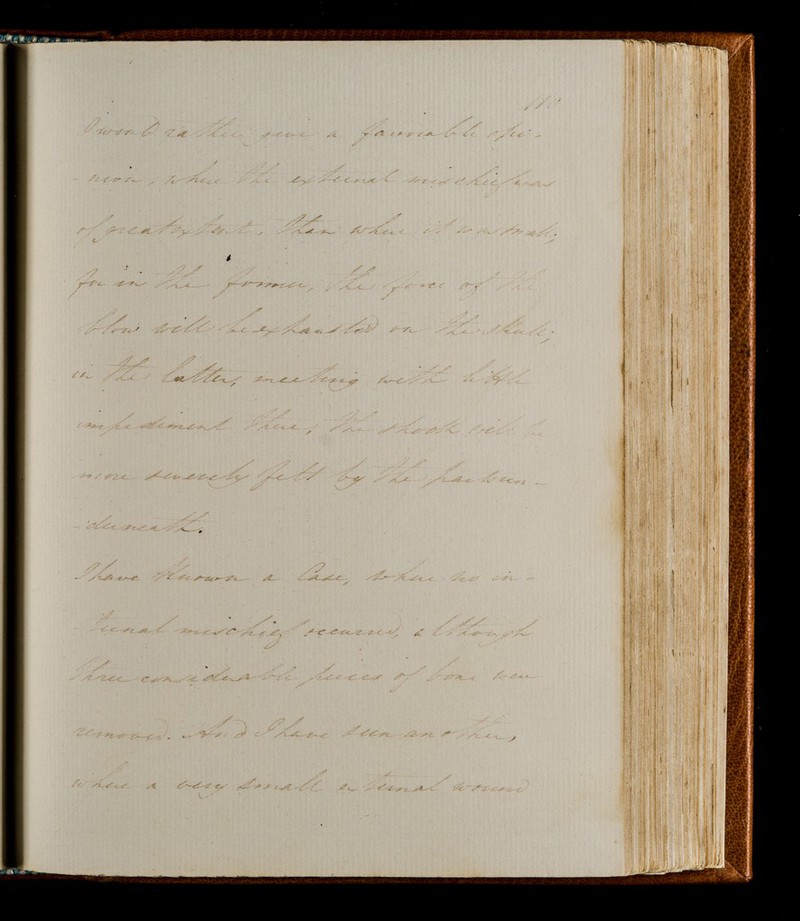 I would rather give a favorable opi-
-nion, where the external mischief was
of great extent, than where it was small;
for in the former, the force of the
blow will be exhausted on the skull;
in the latter, meeting with little
impediment there, the shock will be
more severely felt by the parts un-
-derneath.
I have known a Case, where no in-
-ternal mischief occurred, although
three considerable pieces of bone were
removed. And I have seen another,
where a very small external wound